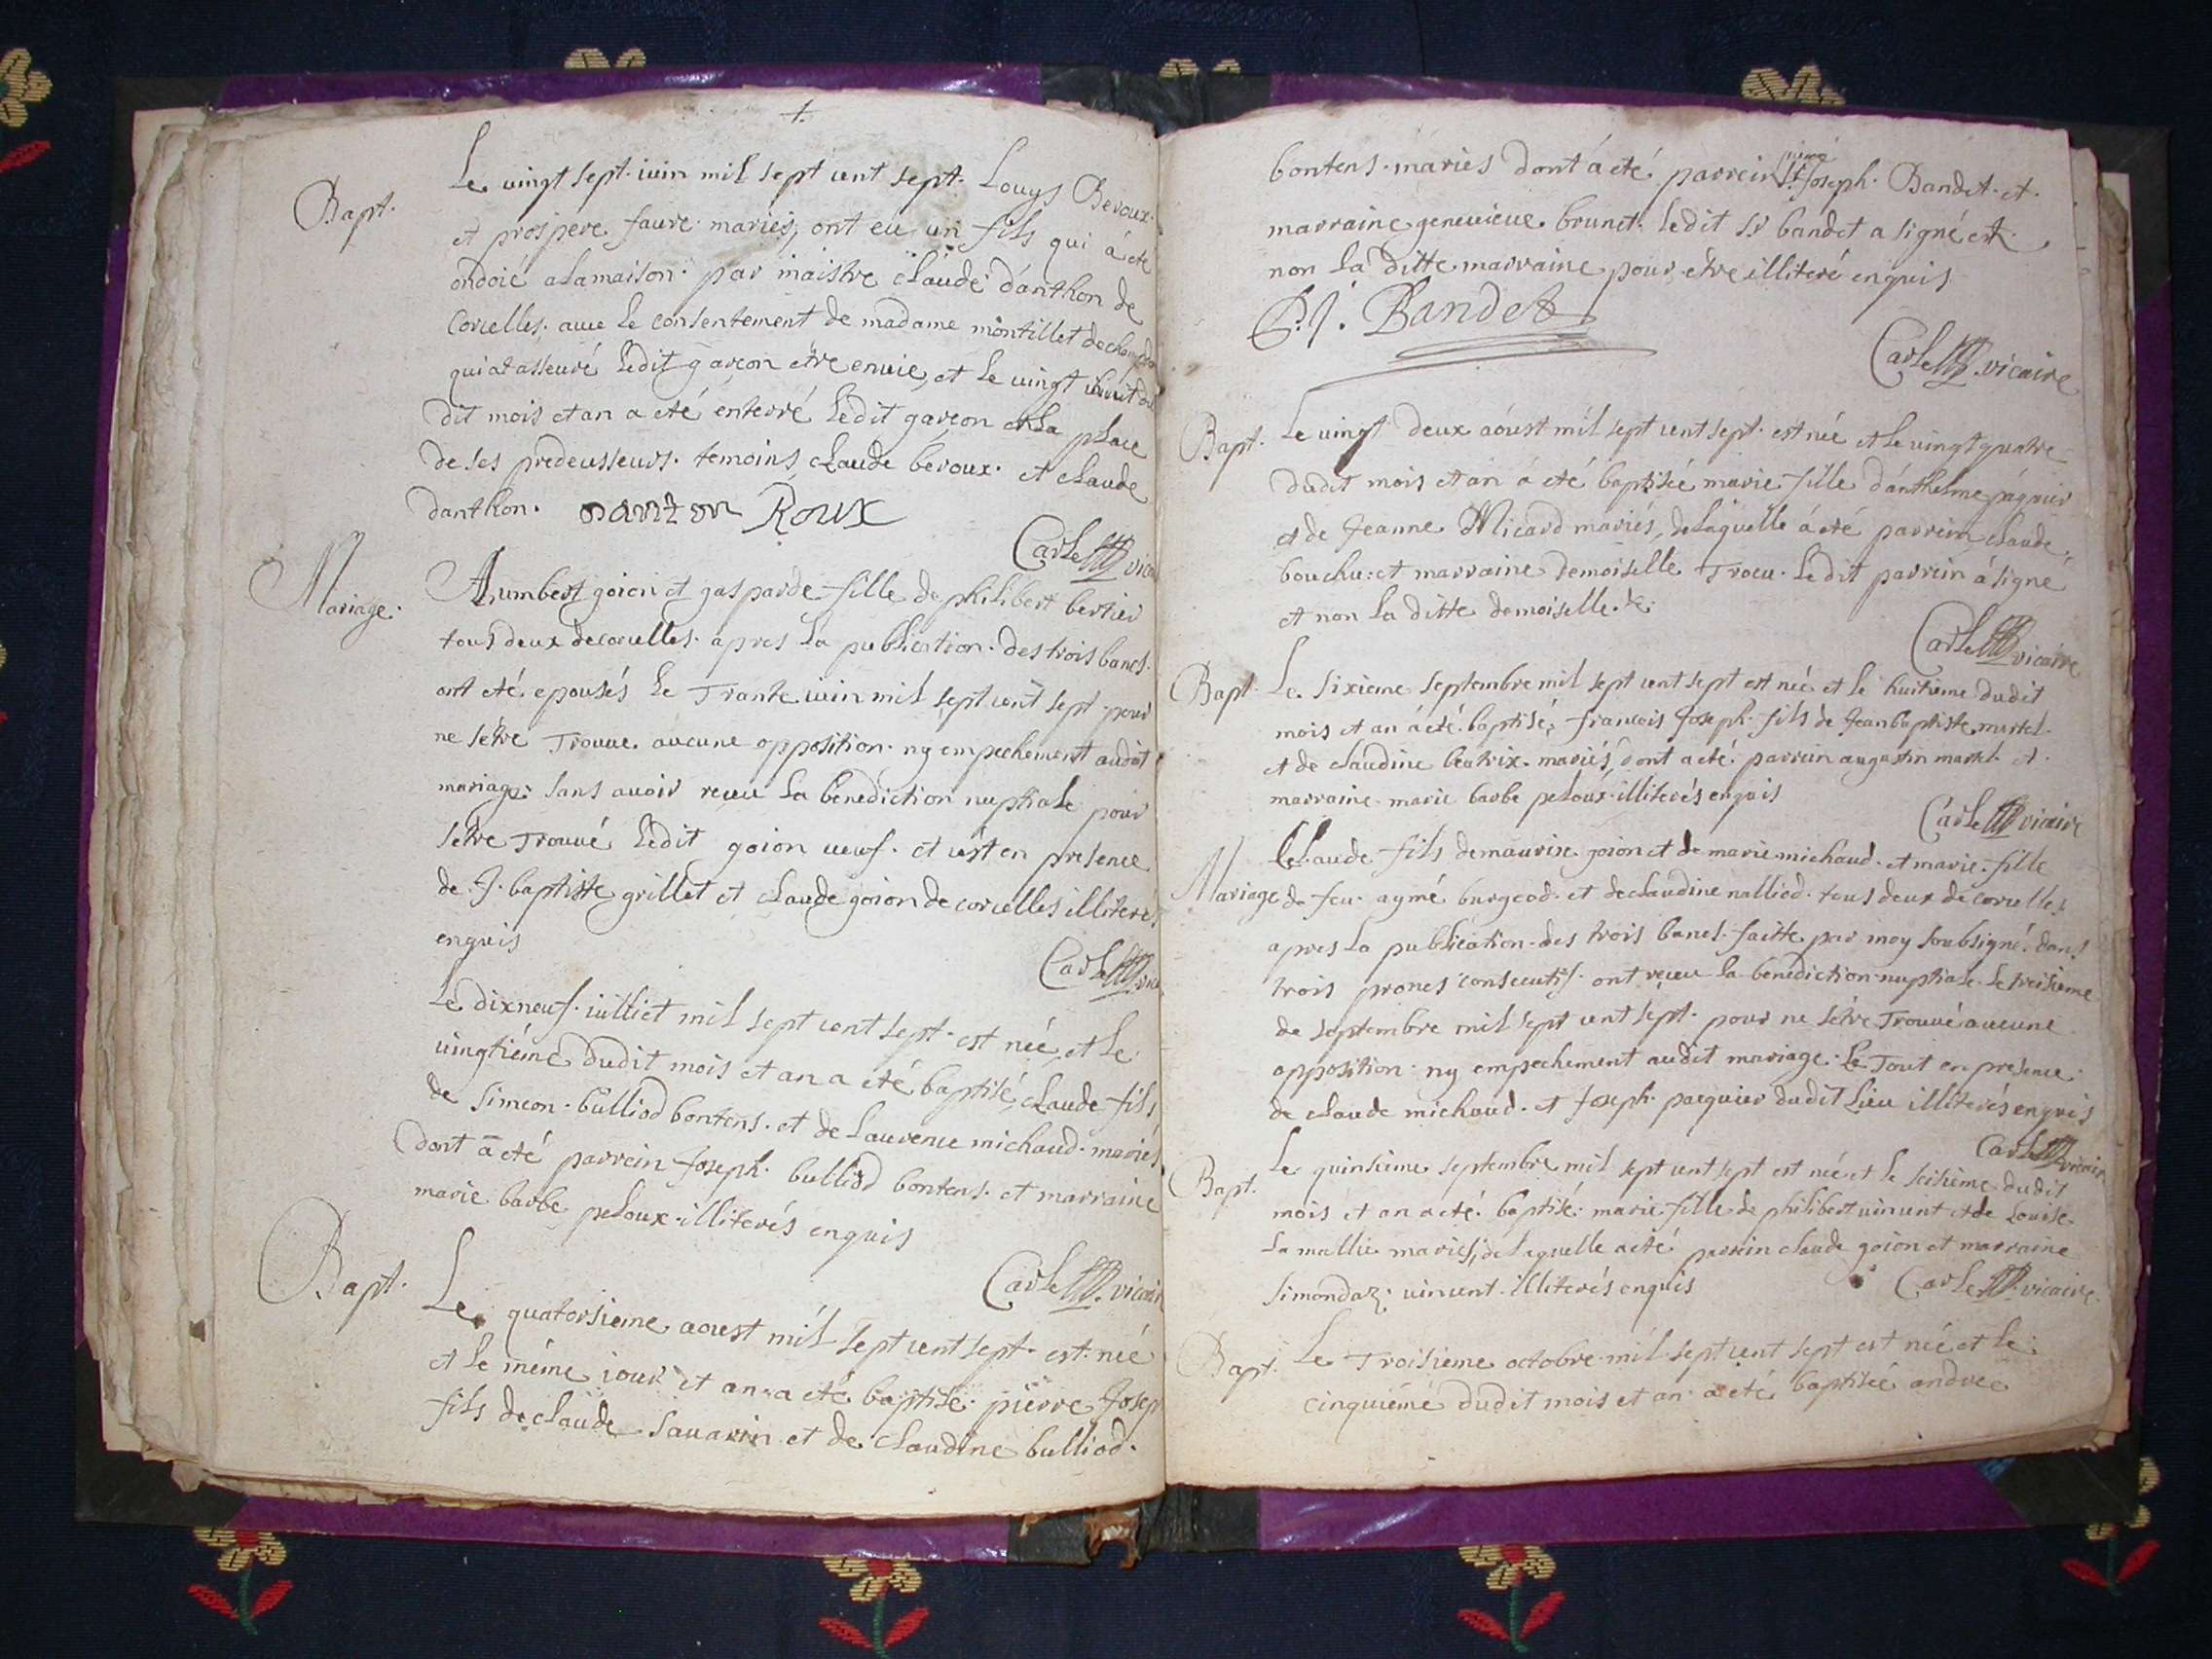 Bapt.
Le vingt sept. iuin mil sept cent sept. Louys Beroux.
et prospere faure mariés, ont eu un fils qui á eté
ondoié a la maison par maistre claude d'anthon de
Corcelles. avec le consentement de madame montillet
qui at asseuré ledit garçon etre en vie, et le vingt huit du
dit mois et an a eté enterré ledit garcon la place
de ses predecesseurs. temoins claude beroux. et claude
danthon. danton Roux
Carle vicaire
Mariage.
humbert goion et gasparde fille de philibert bertier
tous deux de corcelles. apres la publication. des trois bancs.
ont eté epousés le Trante iuin mil sept cent sept pour
ne sétre Trouve aucune opposition. ny empechement audit
mariage. sans avoir receu la benediction nuptiale pour
sétre Trouvé ledit goion veuf. et c'est en presence
de J. baptiste grillet et claude goion de corcelles illiterés
enquis
Carle
Le dixneuf. iulliet mil sept cent sept. est née, et le
vingtiéme dudit mois et an a eté baptisé, claude fils
de simeon. bulliod bontens. et de laurence michaud. mariés
dont a eté parrein Joseph. bulliod bontens. et marraine
marie barbe peloux. illiterés enquis
Carle vicaire
Bapt.
Le quatorsieme aoust mil sept cent sept. est. née
et le méme iour et an a eté baptisé. pierre Josep
fils de claude savarin et de claudine bulliod.
bontens. mariés dont á eté parrein Joseph. Bandet. et.
marraine genevieve brunet. ledit sr bandet a signé et
non la ditte marraine pour etre illiteré enquis
P. J. Bandet
Carle vicaire
Bapt.
Le vingt deux aóust mil sept cent sept. est née et le vingt quatre
dudit mois et an á eté baptisée marie fille d'anthelme
et de Jeanne Micard mariés, de laquelle á eté parrein claude
bouchu: et marraine demoiselle Trocu. ledit parrein á signé
et non la ditte demoiselle.
Carle vicaire
Bapt.
Le sixieme septembre mil sept cent sept est née et le huitieme dudit
mois et an á eté baptisé, francois Joseph. fils de Jean baptiste martel.
et de claudine beatrix. mariés, dont a eté. parrein augustin martel. et.
marraine. marie barbe peloux. illiterés enquis
Carle vicaire
Mariage
Claude fils de maurise goion et de marie michaud. et marie. fille
de feu. aymé burgeod. et de claudine nalliod. tous deux de corcelles
apres la publication. des trois bancs. faitte par moy soubsigné. dans
trois prones consecutifs. ont receu la benediction nuptiale. le treisieme
de septembre mil sept cent sept. pour ne sétre Trouvé aucune
opposition. ny empechement audit mariage. Le Tout en presence.
de claude michaud. et Joseph. pacquier dudit lieu illiterés enquis
Carle vicaire
Bapt.
Le quinsieme septembre mil sept cent sept est née et le seisieme dudit
mois et an a eté. baptisé. marie fille de philibert vincent et de Louise
la mallie mariés, de laquelle a eté parrein claude goion et marraine
simondaz. vincent. illiterés enquis
Carle vicaire.
Bapt.
Le Troisieme octobre mil sept cent sept est née et le
cinquiéme dudit mois et an a eté baptisée andree